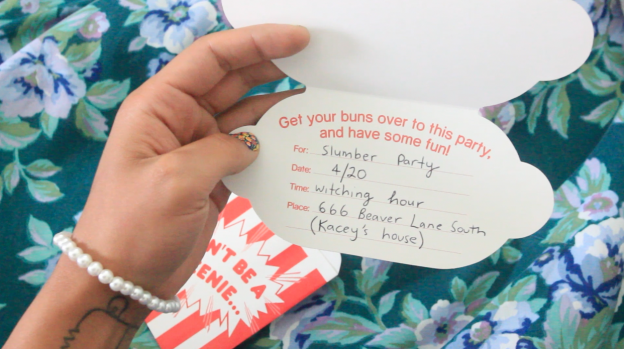 Get your buns over to this party,
and have some fun!
For: Slumber Party
Date: 4/20
Time: witching hour
Place: 666 Beaver Lane South
(Kacey's house)
N'T BE A
ENIE...